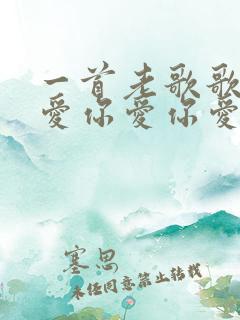 一首老歌歌
爱你爱你爱
塞思
未经同意禁止转载